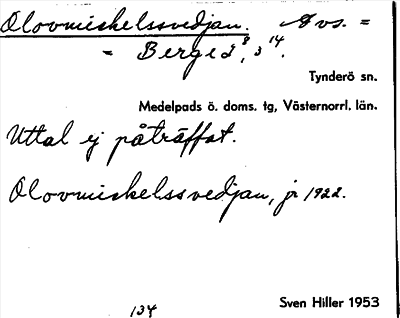 Olovmickelssvedjan. Avs. =
= Berge 2⁸, 3¹⁴.
Tynderö sn.
Medelpads ö. doms. tg, Västernorrl. län.
Uttal ej påträffat.
Olovmickelssvedjan, jr 1922.
134
Sven Hiller 1953